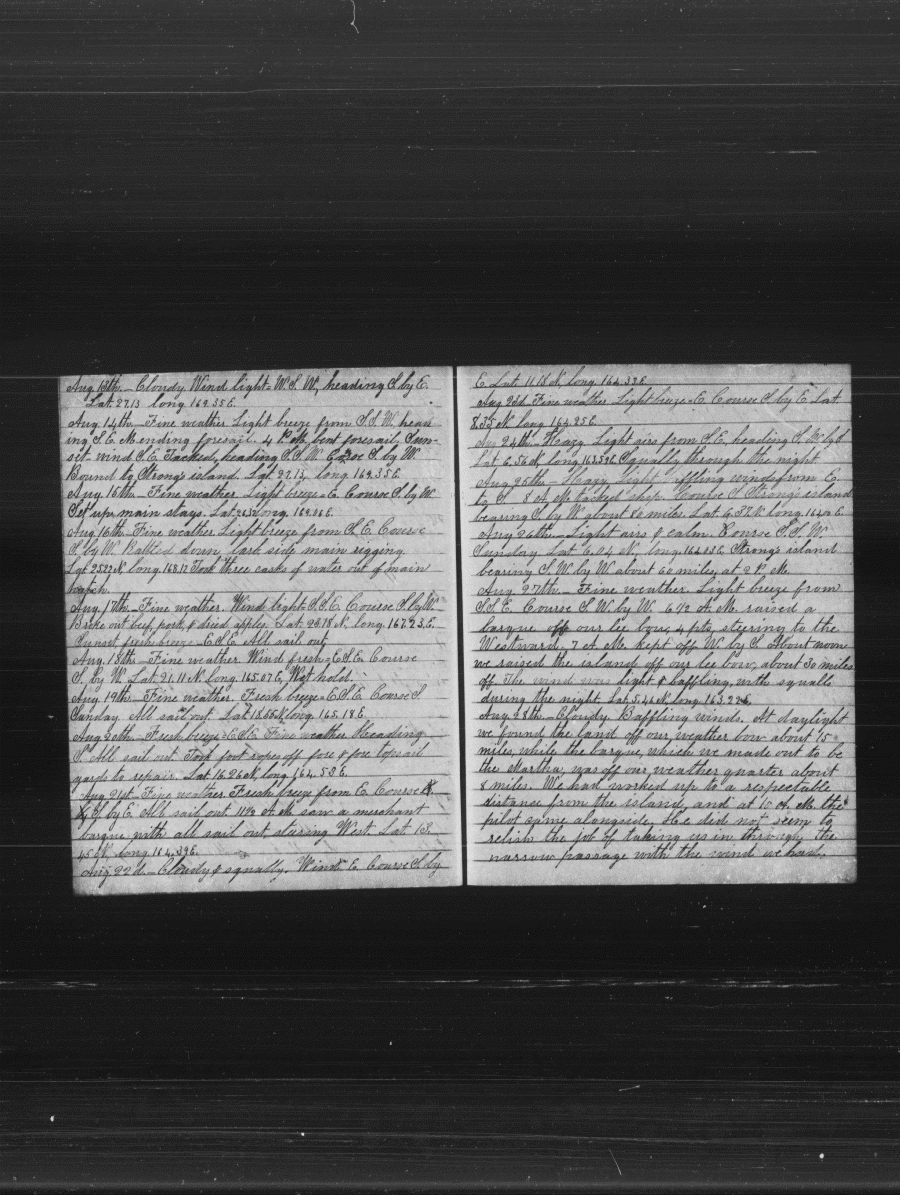 Aug 13th.- Cloudy. Wind light = W.S.W., heading S. by E.
Lat. 27.13 long. 169.35 E.
Aug. 14th.- Fine weather. Light breeze from S.S.W. head
ing S.E. Mending foresail. 4 P.M. bent foresail. Sun-
set wind S.E. Tacked, heading S.S.W. S. by W.
Bound to Strong's island. Lat. 27.13, long. 169.35 E.
Aug. 15th.- Fine weather. Light breeze = E. Course S. by W.
Set up main stays. Lat. long. 169.06 E.
Aug. 16th.- Fine weather. Light breeze from S.E. Course
S. by W. Rattled down lar'd side main rigging.
Lat. 25.22 N. long. 168.12 Took three casks of water out of main
hatch.
Aug. 17th.- Fine weather. Wind light = S.S.E. Course S. by W.
Broke out beef, pork, & dried apples. Lat. 23.18 N. long. 167.23 E.
Sunset fresh breeze = E.S.E. All sail out.
Aug. 18th.- Fine weather. Wind fresh = E.S.E. Course
S. by W. Lat. 21.11 N. long. 165.07 E. Wet hold.
Aug. 19th.- Fine weather. Fresh breeze = E.S.E. Course S.
Sunday. All sail out. Lat. 18.55 N. long. 165.18 E.
Aug. 20th.- Fresh breeze = E.S.E. Fine weather Heading
S. All sail out. Took foot ropes off fore & fore topsail
yards to repair. Lat. 16.26 N. long. 164.53 E.
Aug. 21st.- Fine weather. Fresh breeze from E. Course
S. by E. All sail out. A.M. saw a merchant
barque with all sail out stearing West. Lat. 13.
45 N. long. 164.39 E.
Aug 22d.- Cloudy & squally. Wind E. Course S. by
E. Lat. 11.18 N. long. 164.33 E.
Aug 23d. Fine weather Light breeze = E. Course S. by E. Lat.
8.35 N. long. 164.25 E.
Aug 24th.- Hazy. Light airs from S.E., heading S.
Lat. 6.56 N. long. 163.59 E. Squally through the night
Aug. 25th.- Hazy. Light baffling winds from E.
to S. 8 A.M. tacked ship. Course S. Strong's island
bearing S. by W. about 80 miles. Lat. 6.32 N. long. E.
Aug 26th.- Light airs & calm. Course S.S.W.
Sunday. Lat. 6.04 N., long. 164.03 E. Strong's island
bearing S.W. by W. about 60 miles, at 2 P.M.
Aug. 27th.- Fine weather. Light breeze from
S.S.E. Course S.W. by W. 6 1/2 A.M. raised a
barque off our lee bow, 4 pts, steering to the
Westward. 7 A.M. kept off W. by S. About noon
we raised the island off our lee bow, about 30 miles
off. The wind was light & baffling, with squalls
during the night. Lat. 5.46 N. long. 163.22 E.
Aug 28th.- Cloudy. Baffling winds. At daylight
we found the land off our weather bow about 15
miles, while the barque, which we made out to be
the Martha, was off our weather quarter about
8 miles. We had worked up to a respectable
distance from the island, and at 10 A.M. the
pilot came alongside. He did not seem to
relish the job of taking us in through the
narrow passage with the wind we had.